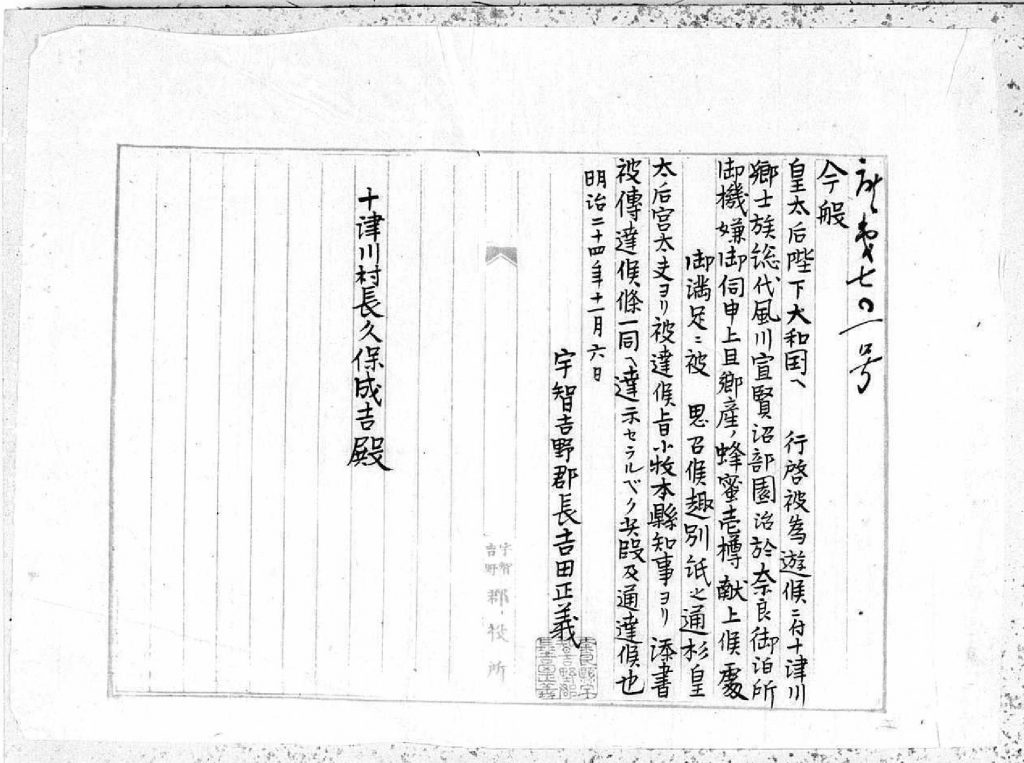 第七〇一号
今般
皇太后陛下大和国ヘ　行啓被為遊候ニ付十津川
郷士族総代風川宣賢沼部園治於奈良御泊所
御機嫌御伺申上且郷産ノ蜂蜜壱樽献上候処
御満足ニ被　思召候趣別紙之通杉皇
太后宮太夫ヨリ被達候旨小牧本縣知事ヨリ添書
被傳達候條一同ヘ達示セラルベク此段及通達候也
明治二十四年十一月六日
宇智吉野郡長吉田正義
十津川村長久保成吉殿
宇智
吉野
郡役所